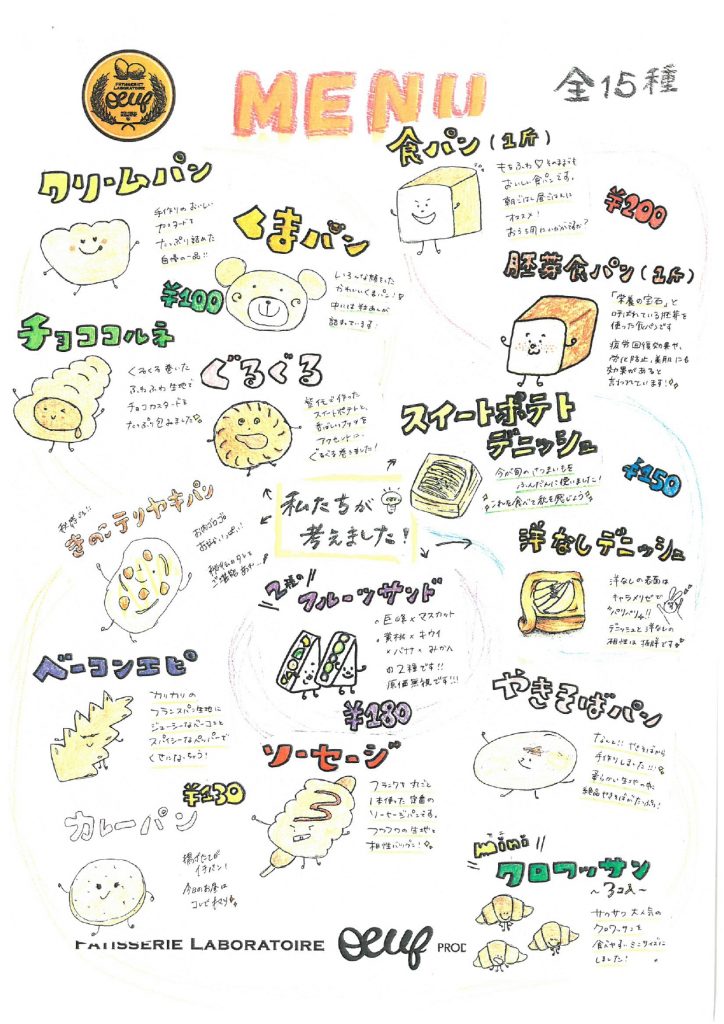 PATISSERIE
LABORATOIRE
oeuf
MENU
全15種
クリームパン
手作りのおいしい
カスタードを
たっぷり詰めた
自慢の一品!!
くまパン
いろんな顔をした
かわいいくまパン!
中には粒あんが
詰まっています!
¥100
チョココルネ
くるくる巻いた
ふわふわ生地で
チョコカスタードを
たっぷり包みました
ぐるぐる
スイートポテトと、
香ばしいナッツを
アクセントに、
ぐるぐる巻きました!
食パン(1斤)
もちふわ♡そのままでも
おいしい食パンです。
朝ごはん昼ごはんに
オススメ!
おうち用にいかが?
¥200
胚芽食パン(1斤)
「栄養の宝石」と
呼ばれている胚芽を
使った食パンです
疲労回復効果や、
劣化防止、美肌にも
効果があると
言われています!
スイートポテト
デニッシュ
今が旬のさつまいもを
ふんだんに使いました!
これを食べて秋を感じよう
¥150
きのこテリヤキパン
お肉ゴロゴロ
私たちが
考えました!
洋なしデニッシュ
洋なしの表面は
キャラメリゼで
"パリパリ"!!
デニッシュと洋なしの
相性は抜群です
2種の
フルーツサンド
・巨峰×マスカット
・黄桃×キウイ
×バナナ×みかん
の2種です!!
原価無視です!!!
¥180
ベーコンエピ
カリカリの
フランスパン生地に
ジューシーなベーコンと
スパイシーなペッパーで
くせになっちゃう!
¥130
やきそばパン
なんと!! やきそばから
手作りしました!!!
柔らかい生地の中に
絶品やきそばがたっぷり!
ソーセージ
フランクを丸ごと
1本使った定番の
ソーセージパンです。
フワフワの生地と
相性バツグン!
カレーパン
揚げたてが
イチバン!
今日のお昼は
コレで決まり
mini
クロワッサン
~3コ入~
サクサク大人気の
クロワッサンを
食べやすいミニサイズに
しました!
PATISSERIE LABORATOIRE oeuf PROD